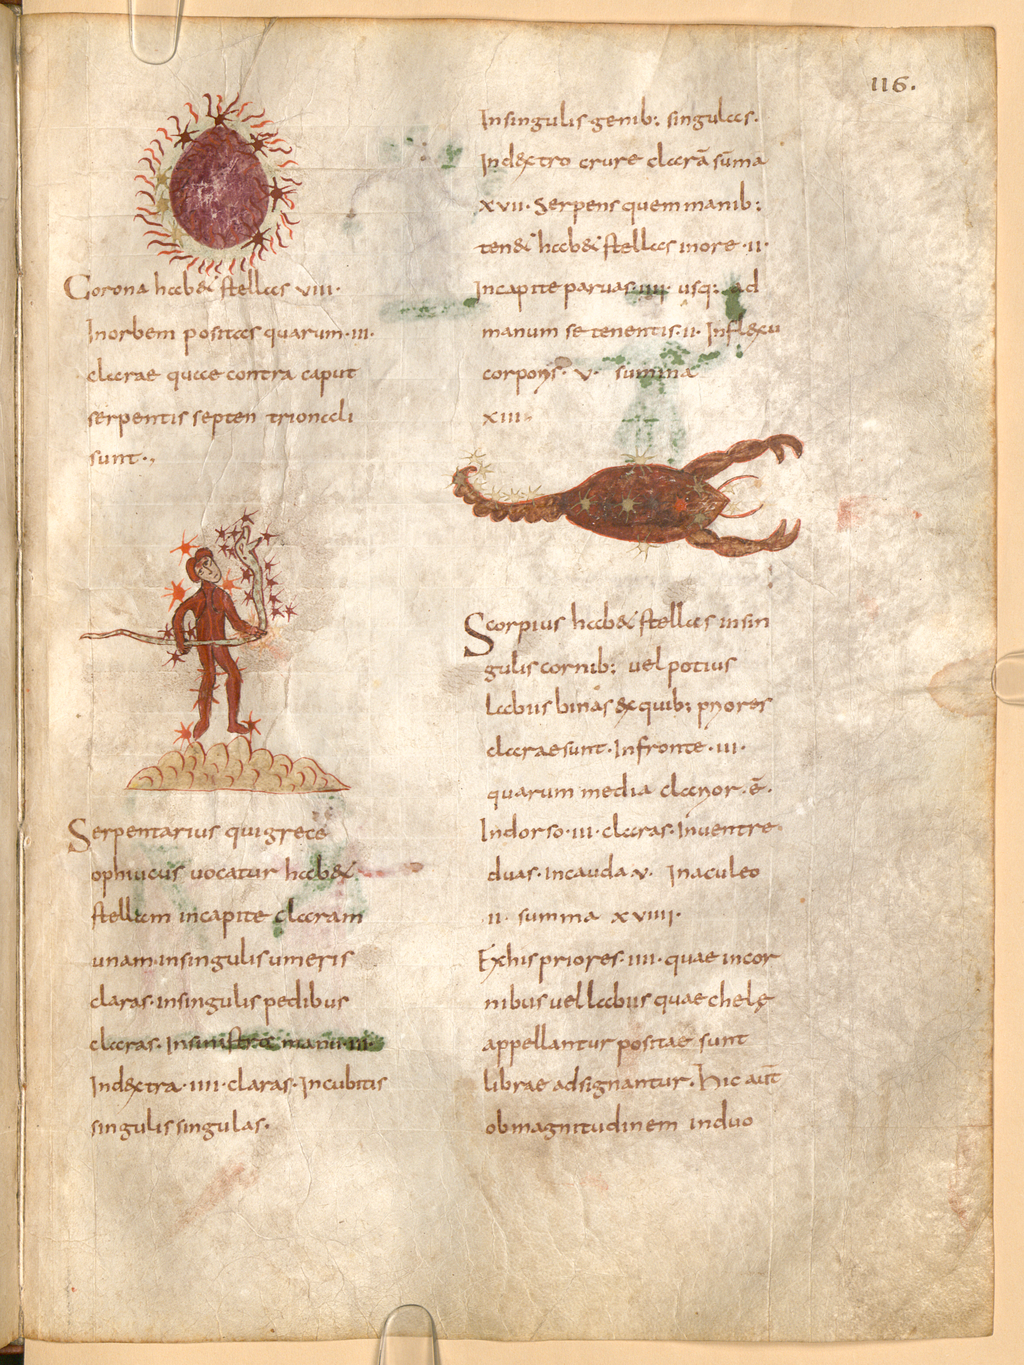 116.
Corona habet stellas viii.
Inorbem positas quarum .iii.
clarae quae contra caput
serpentis septentrionali
sunt.,
Serpentarius qui grece
ophiucus vocatur habet
stellam incapite claram
unam. insingulis umeris
claras. insingulis pedibus
claras. Insinistra manu .iii.
Indextra .iiii. claras. Incubitis
singulis singulas.
Insingulis genib: singulas.
Indextro crure clarā sūma
xvii. Serpens quem manib:
tenet habet stellas inore .ii.
Incapite parvas .iiii. usq: ad
manum se tenentis .ii. Inflexu
corporis. v. summa
xiii.
Scorpius habet stellas insin
gulis cornib: vel potius
labiis binas ex quib: priores
clarae sunt. Infronte .iii.
quarum media clarior .ē.
Indorso .iii. claras. Inventre
duas. incauda .v. Inaculeo
.ii. summa xviiii.
Exhis priores .iiii. quae incor
nibus vel labiis quae chelę
appellantur positae sunt
librae adsignantur. Hic aūt
obmagnitudinem induo